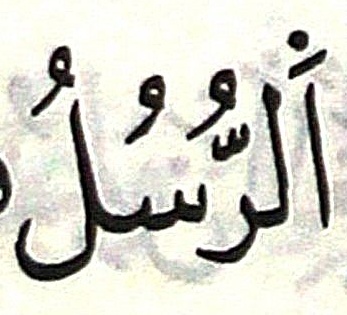 اَ۬لرُّسُلُ